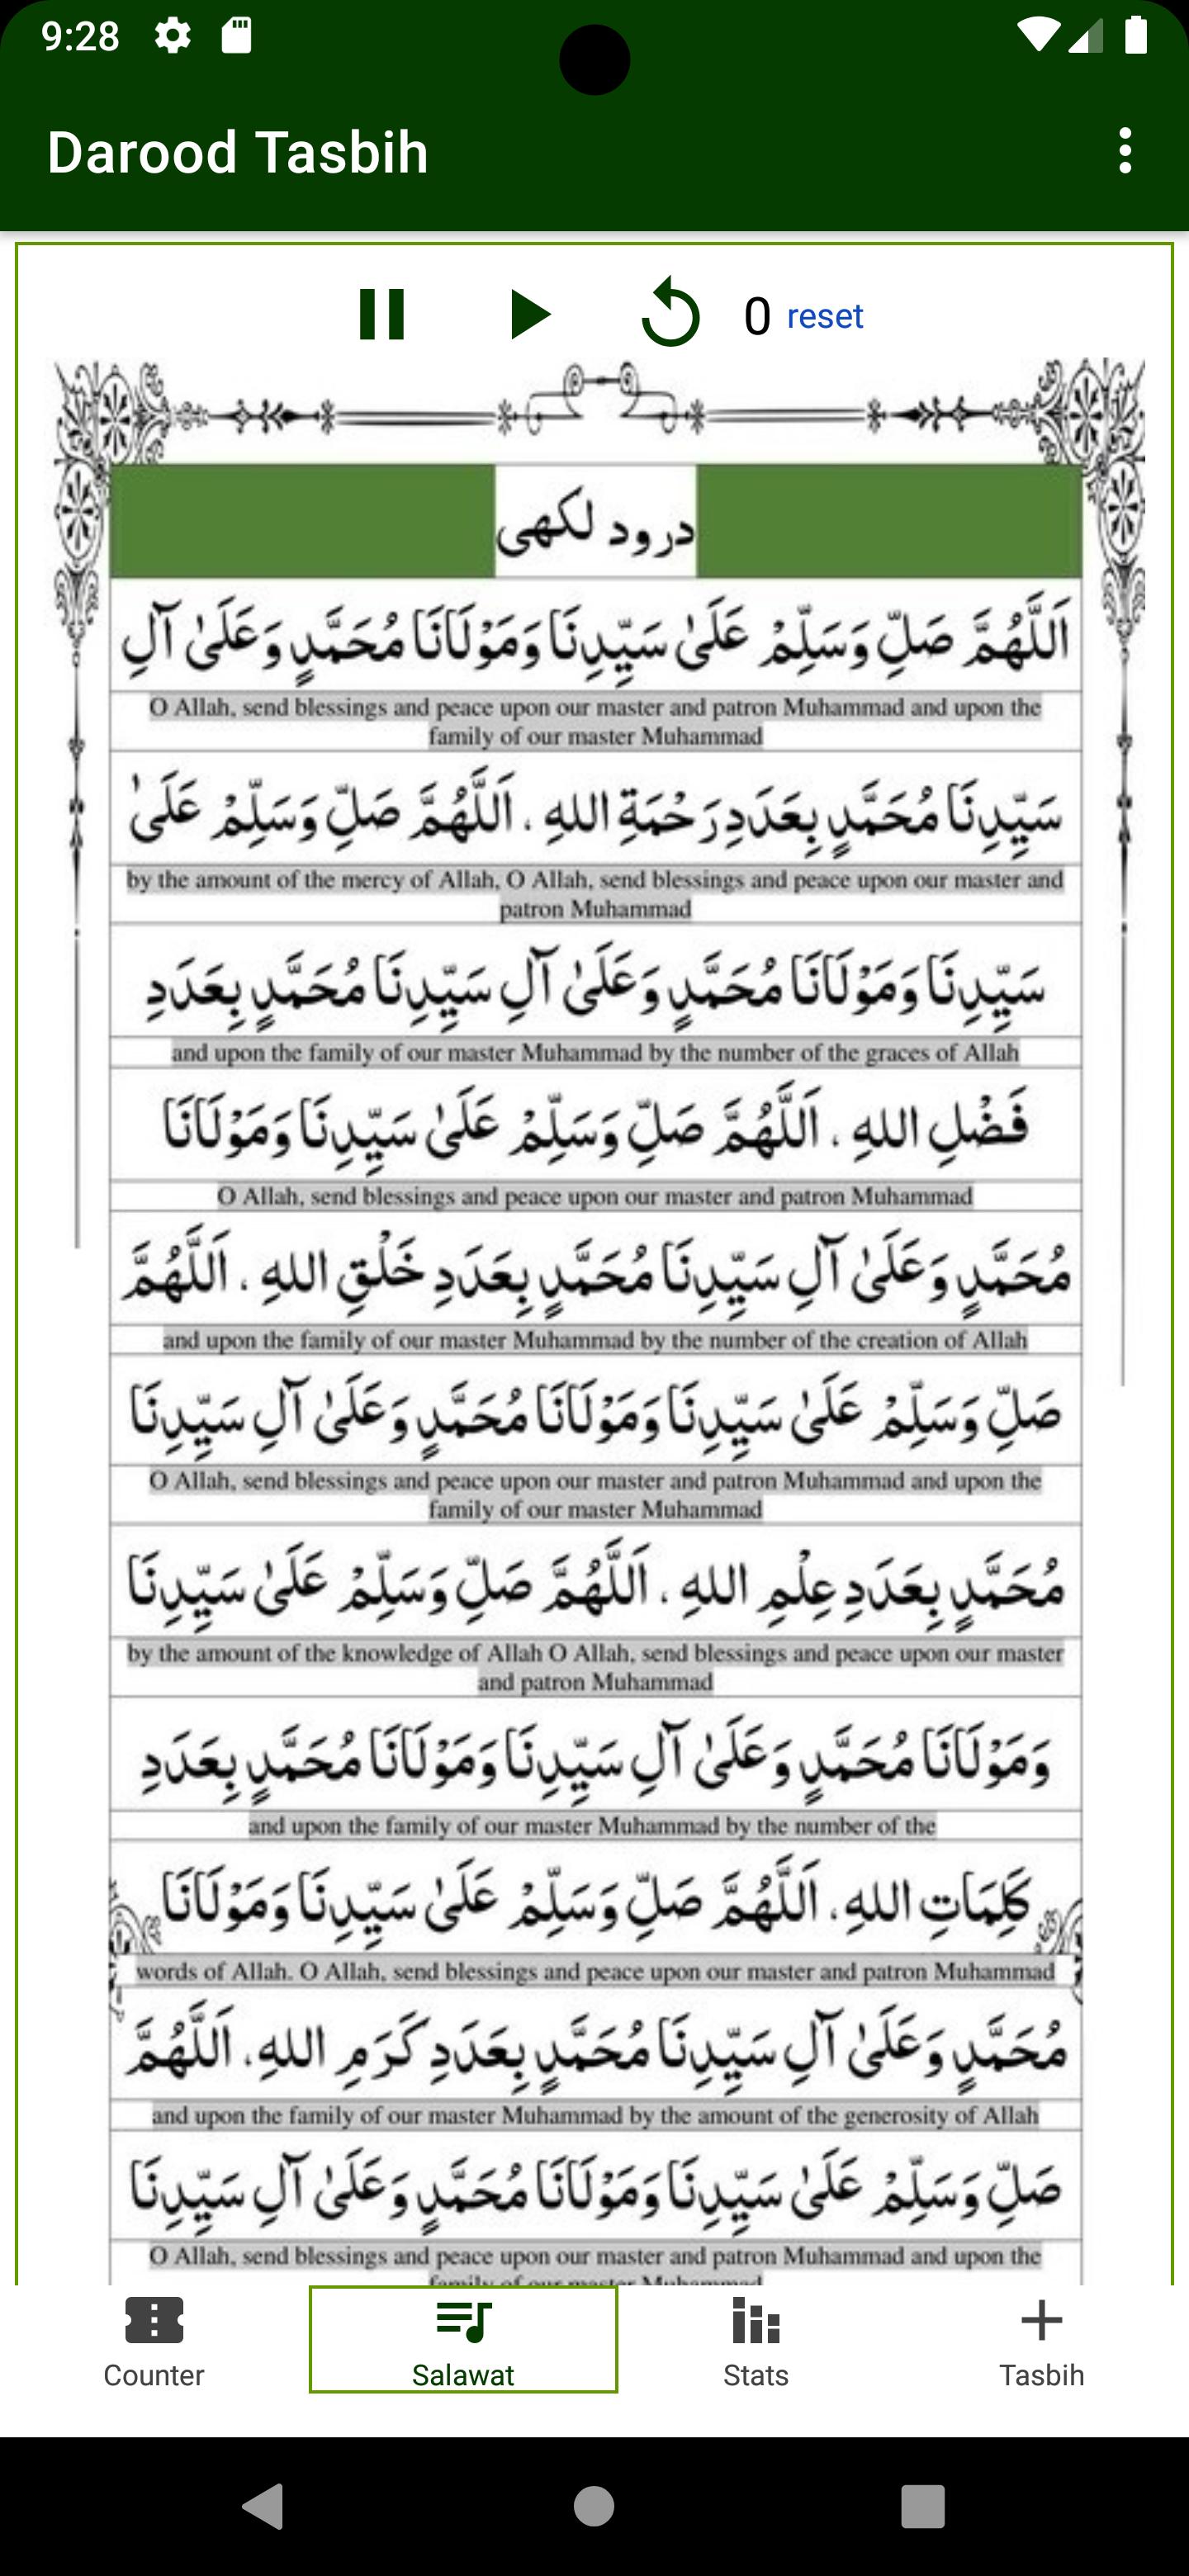 9:28
Darood Tasbih
0 reset
درود لکھی
اَللَّهُمَّ صَلِّ وَسَلِّمْ عَلَىٰ سَيِّدِنَا وَمَوْلَانَا مُحَمَّدٍ وَعَلَىٰ آلِ
O Allah, send blessings and peace upon our master and patron Muhammad and upon the
family of our master Muhammad
سَيِّدِنَا مُحَمَّدٍ بِعَدَدِ رَحْمَةِ اللهِ . اَللَّهُمَّ صَلِّ وَسَلِّمْ عَلَىٰ
by the amount of the mercy of Allah, O Allah, send blessings and peace upon our master and
patron Muhammad
سَيِّدِنَا وَمَوْلَانَا مُحَمَّدٍ وَعَلَىٰ آلِ سَيِّدِنَا مُحَمَّدٍ بِعَدَدِ
and upon the family of our master Muhammad by the number of the graces of Allah
فَضْلِ اللهِ . اَللَّهُمَّ صَلِّ وَسَلِّمْ عَلَىٰ سَيِّدِنَا وَمَوْلَانَا
O Allah, send blessings and peace upon our master and patron Muhammad
مُحَمَّدٍ وَعَلَىٰ آلِ سَيِّدِنَا مُحَمَّدٍ بِعَدَدِ خَلْقِ اللهِ . اَللَّهُمَّ
and upon the family of our master Muhammad by the number of the creation of Allah
صَلِّ وَسَلِّمْ عَلَىٰ سَيِّدِنَا وَمَوْلَانَا مُحَمَّدٍ وَعَلَىٰ آلِ سَيِّدِنَا
O Allah, send blessings and peace upon our master and patron Muhammad and upon the
family of our master Muhammad
مُحَمَّدٍ بِعَدَدِ عِلْمِ اللهِ . اَللَّهُمَّ صَلِّ وَسَلِّمْ عَلَىٰ سَيِّدِنَا
by the amount of the knowledge of Allah O Allah, send blessings and peace upon our master
and patron Muhammad
وَمَوْلَانَا مُحَمَّدٍ وَعَلَىٰ آلِ سَيِّدِنَا وَمَوْلَانَا مُحَمَّدٍ بِعَدَدِ
and upon the family of our master Muhammad by the number of the
كَلِمَاتِ اللهِ . اَللَّهُمَّ صَلِّ وَسَلِّمْ عَلَىٰ سَيِّدِنَا وَمَوْلَانَا
words of Allah. O Allah, send blessings and peace upon our master and patron Muhammad
مُحَمَّدٍ وَعَلَىٰ آلِ سَيِّدِنَا مُحَمَّدٍ بِعَدَدِ كَرَمِ اللهِ . اَللَّهُمَّ
and upon the family of our master Muhammad by the amount of the generosity of Allah
صَلِّ وَسَلِّمْ عَلَىٰ سَيِّدِنَا وَمَوْلَانَا مُحَمَّدٍ وَعَلَىٰ آلِ سَيِّدِنَا
O Allah, send blessings and peace upon our master and patron Muhammad and upon the
family of our master Muhammad
Counter
Salawat
Stats
Tasbih